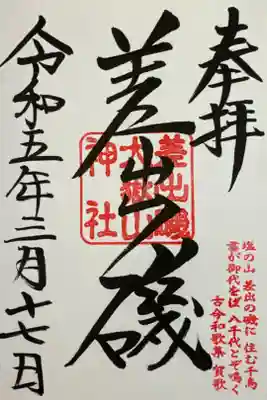 奉拝
差出ノ磯
差出磯
大嶽山
神社
令和五年三月十七日
塩の山 差出の磯に 住む千鳥
君が御代をば 八千代とぞ鳴く
古今和歌集 賀歌